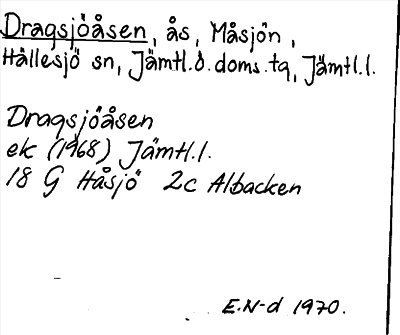 Dragsjöåsen, ås, Måsjön,
Hällesjö sn, Jämtl.ö.doms.tq, Jämtl.l.
Dragsjöåsen
ek (1968) Jämtl.l.
18 G Håsjö 2c Albacken
E.N-d 1970.